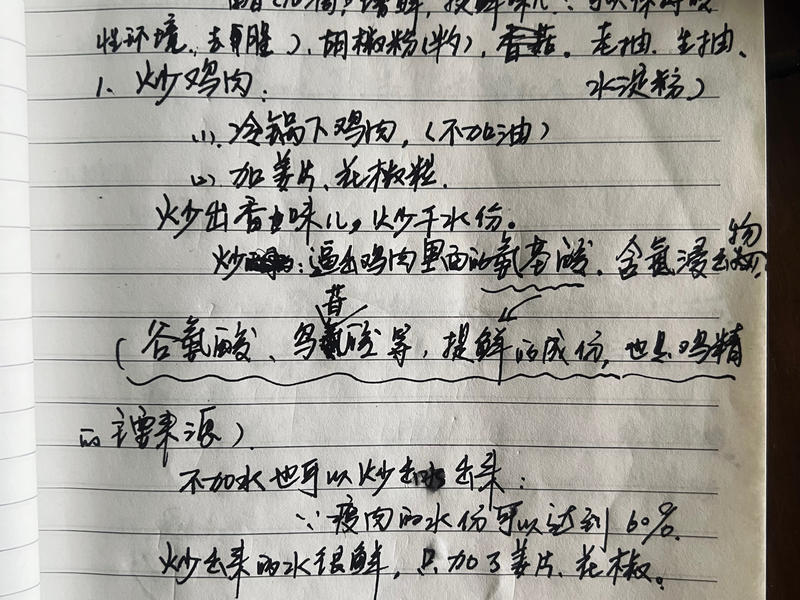 性环境,去腥),胡椒粉(粒),香菇。老抽、生抽、
水淀粉)
1、炒鸡肉:
(1)、冷锅下鸡肉,(不加油)
(2)、加姜片、花椒粒.
炒出香味儿,炒干水份。
炒:逼出鸡肉里面的氨基酸、含氮浸出物,
(谷氨酸、鸟苷酸等,提鲜的成份,也是鸡精
的主要来源)
不加水也可以炒出水出来:
∵瘦肉的水份可以达到60%.
炒出来的水很鲜,只加了姜片、花椒。